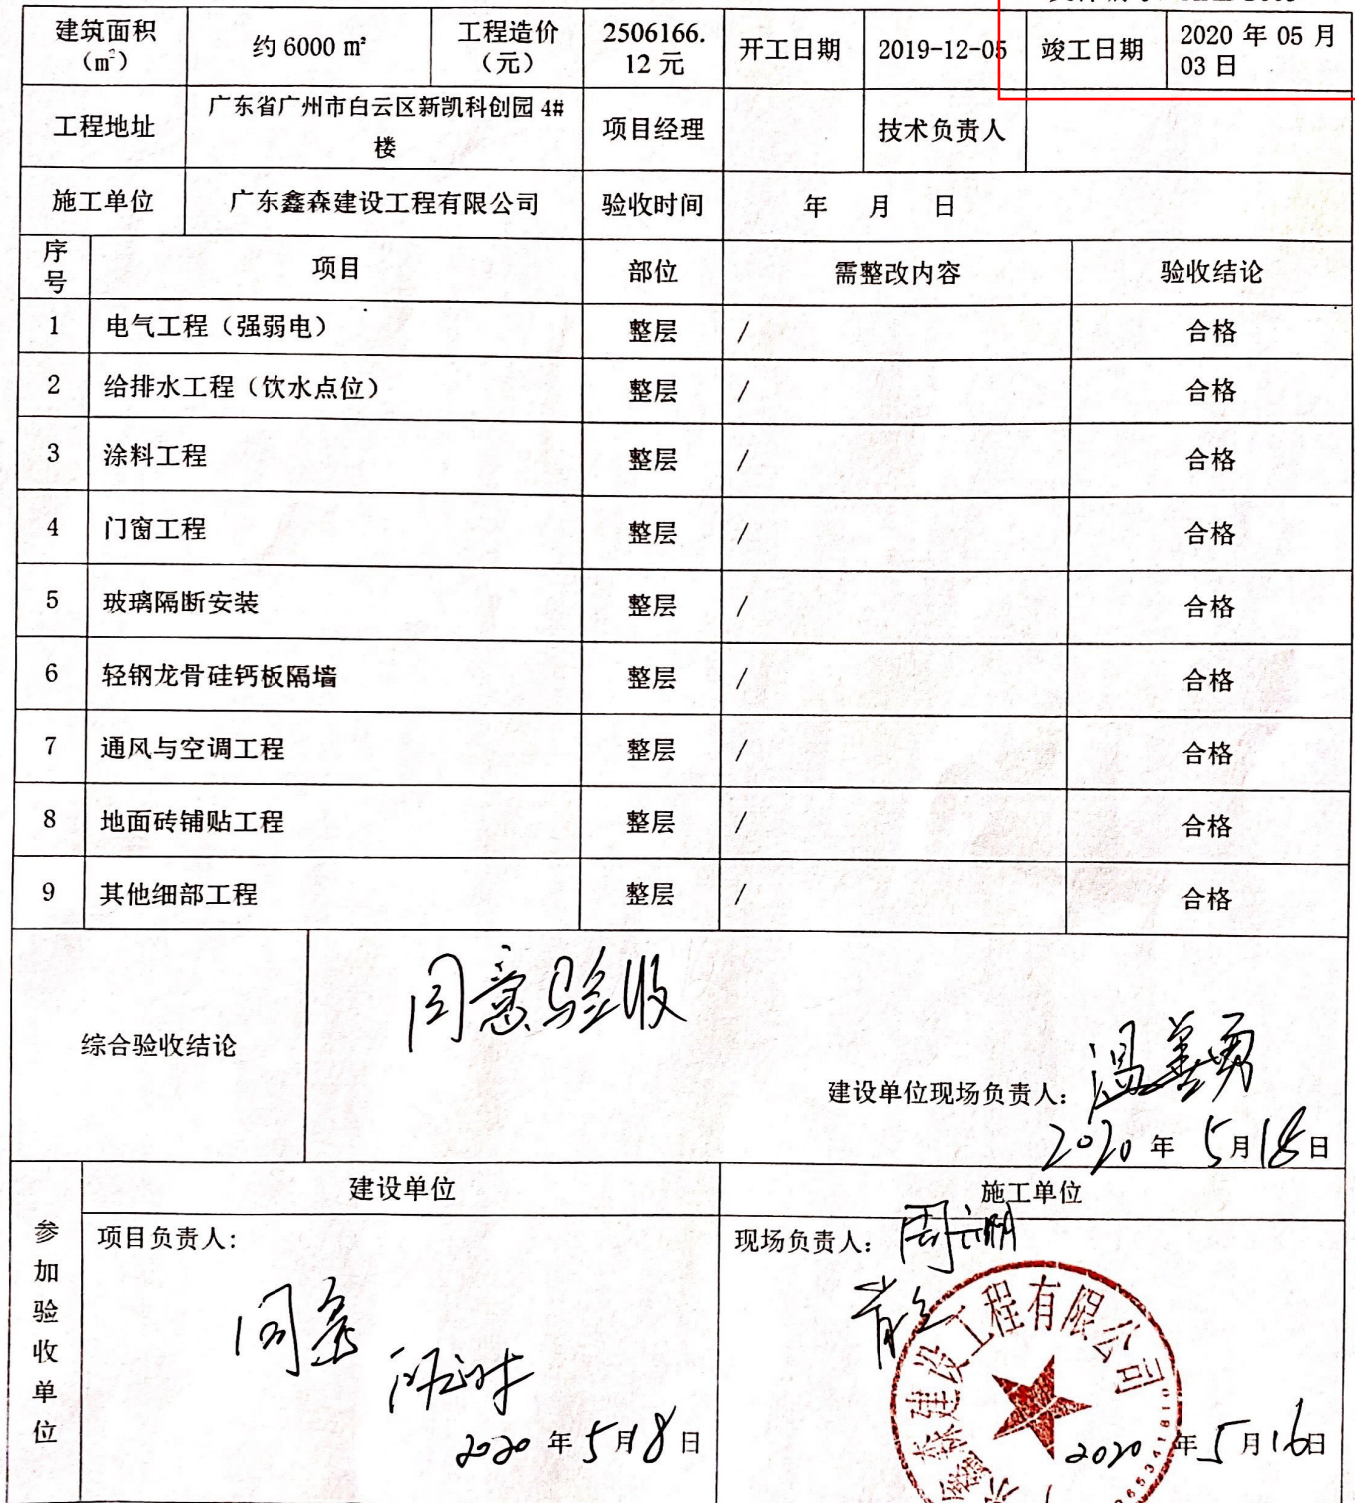 建筑面积
(㎡)
约 6000 ㎡
工程造价
(元)
2506166.
12 元
开工日期
2019-12-05
竣工日期
2020 年 05 月
03 日
工程地址
广东省广州市白云区新凯科创园 4#
楼
项目经理
技术负责人
施工单位
广东鑫森建设工程有限公司
验收时间
年 月 日
序
号
项目
部位
需整改内容
验收结论
1 电气工程（强弱电） 整层 / 合格
2 给排水工程（饮水点位） 整层 / 合格
3 涂料工程 整层 / 合格
4 门窗工程 整层 / 合格
5 玻璃隔断安装 整层 / 合格
6 轻钢龙骨硅钙板隔墙 整层 / 合格
7 通风与空调工程 整层 / 合格
8 地面砖铺贴工程 整层 / 合格
9 其他细部工程 整层 / 合格
综合验收结论
同意验收
建设单位现场负责人：温善勇
2020 年 5 月 18 日
参加验收单位
建设单位
项目负责人：
同意
2020 年 5 月 18 日
施工单位
现场负责人：
森建设工程有限公司
2020 年 5 月 16 日